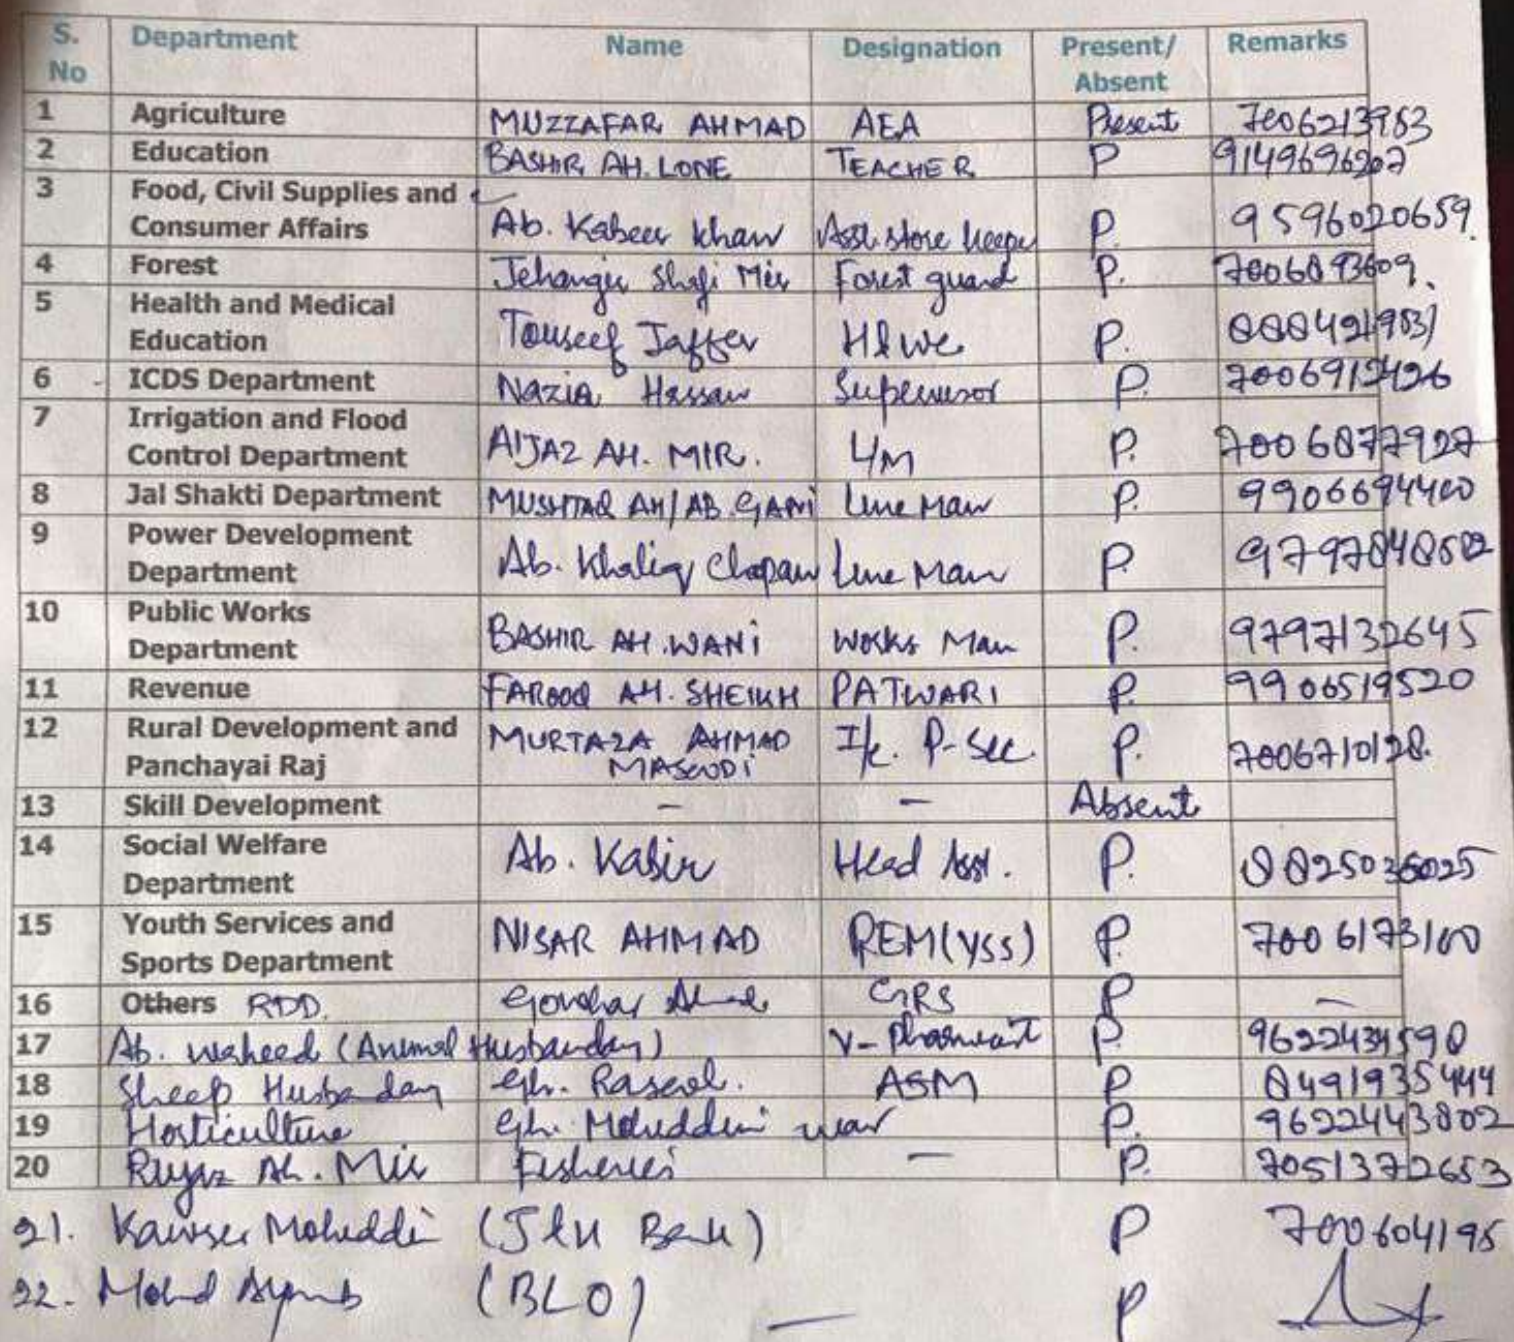 S. No Department Name Designation Present/ Absent Remarks
1 Agriculture MUZZAFAR AHMAD AEA Present 7006213953
2 Education BASHIR AH. LONE TEACHER P 9149696207
3 Food, Civil Supplies and Consumer Affairs Ab. Kabeer Khan Asst. store keeper P. 9596020659
4 Forest Jehangir Shafi Mir Forest guard P. 7006893609
5 Health and Medical Education Touseef Jaffer P.
6 ICDS Department Nazia Hassan Supervisor P. 7006912426
7 Irrigation and Flood Control Department AIJAZ AH. MIR. P. 7006877927
8 Jal Shakti Department MUSHTAQ AH/AB. GANI Line Man P. 9906694400
9 Power Development Department Ab. Khaliq Chopan Line Man P. 9797848502
10 Public Works Department BASHIR AH. WANI Works Man P. 9797132645
11 Revenue FAROOQ AH. SHEIKH PATWARI P. 9906519520
12 Rural Development and Panchayai Raj MURTAZA AHMAD MASOODI I/c. P-Sec. P. 7006710128.
13 Skill Development – – Absent
14 Social Welfare Department Ab. Kabir Head Asst. P. 8825036025
15 Youth Services and Sports Department NISAR AHMAD REM(YSS) P. 7006173100
16 Others RDD. Gowhar GRS P –
17 Ab. Waheed (Animal Husbanday) V- Pharmacist P. 9622434590
18 Sheep Husbanday Gh. Rasool. ASM P 8491935444
19 Horticulture Gh. Mohuddin war P. 9622443802
20 Ah. Mir Fisheries – P. 7051372653
21. Kawser Mohuddi (J&K Bank) P 700604195
22. Mohd Ayoub (BLO) – P